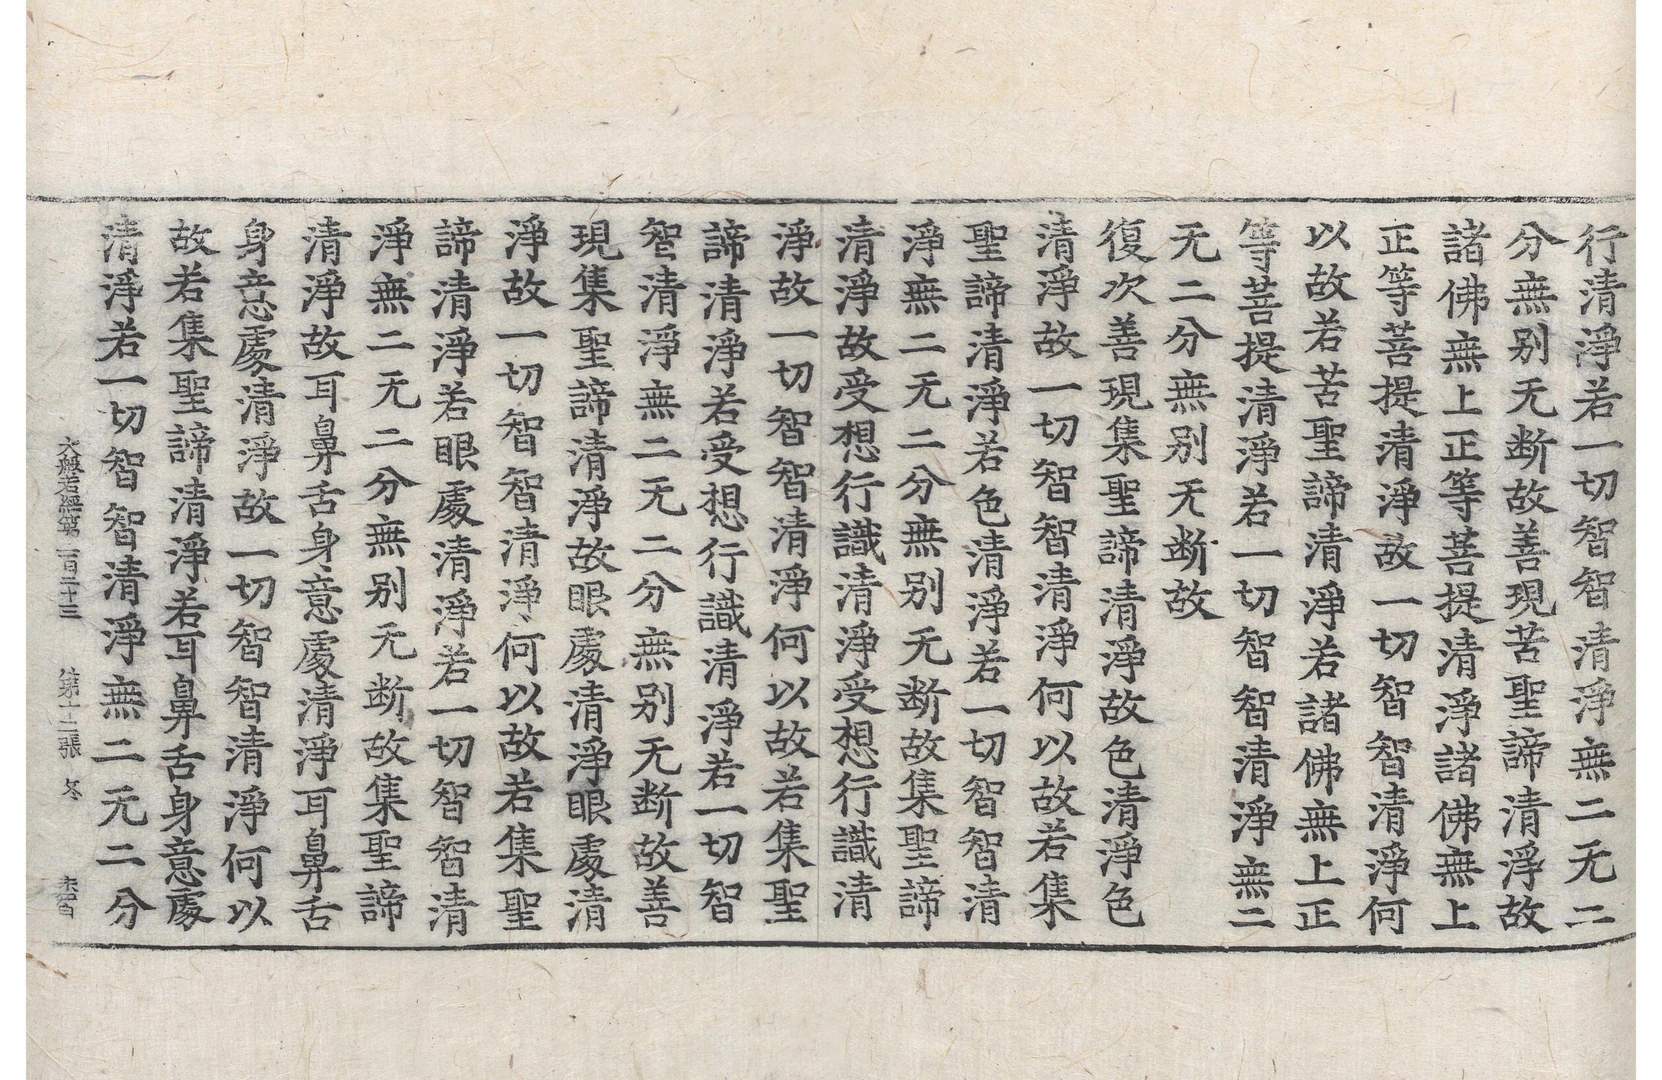 行清淨若一切智智清淨無二无二
分無别无断故善現苦聖諦清淨故
諸佛無上正等菩提清淨諸佛無上
正等菩提清淨故一切智智清淨何
以故若苦聖諦清淨若諸佛無上正
等菩提清淨若一切智智清淨無二
无二分無别无断故
復次善現集聖諦清淨故色清淨色
清淨故一切智智清淨何以故若集
聖諦清淨若色清淨若一切智智清
淨無二无二分無别无断故集聖諦
清淨故受想行識清淨受想行識清
淨故一切智智清淨何以故若集聖
諦清淨若受想行識清淨若一切智
智清淨無二无二分無别无断故善
現集聖諦清淨故眼處清淨眼處清
淨故一切智智清淨何以故若集聖
諦清淨若眼處清淨若一切智智清
淨無二无二分無别无断故集聖諦
清淨故耳鼻舌身意處清淨耳鼻舌
身意處清淨故一切智智清淨何以
故若集聖諦清淨若耳鼻舌身意處
清淨若一切智智清淨無二无二分
大般若經第二百二十三 第十二張 冬